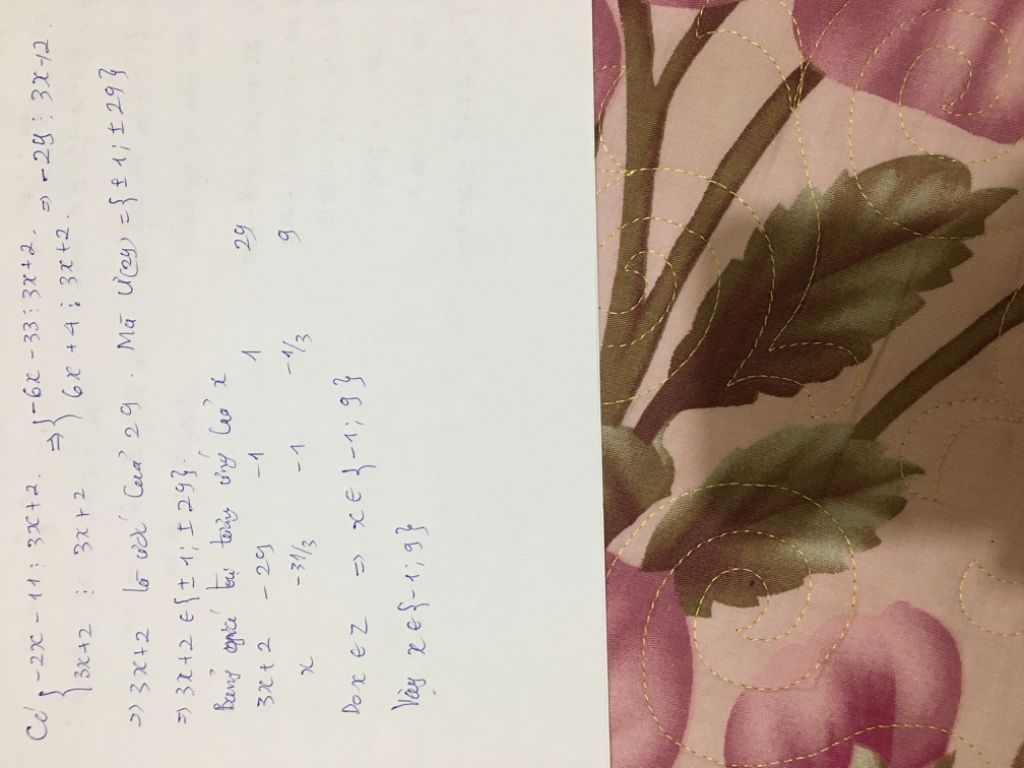 Có { -2x - 11 ⋮ 3x+2. ⇒ { -6x - 33 ⋮ 3x+2. ⇒ -29 ⋮ 3x+2.
3x+2 ⋮ 3x+2 6x + 4 ⋮ 3x+2.
⇒ 3x+2 là ước của 29. Mà Ư(29) = {± 1; ± 29}
⇒ 3x+2 ∈ {± 1; ± 29}.
Bảng giá trị tương ứng của x
3x+2 -29 -1 1 29
x -31/3 -1 -1/3 9
Do x ∈ Z ⇒ x ∈ {-1; 9}
Vậy x ∈ {-1; 9}